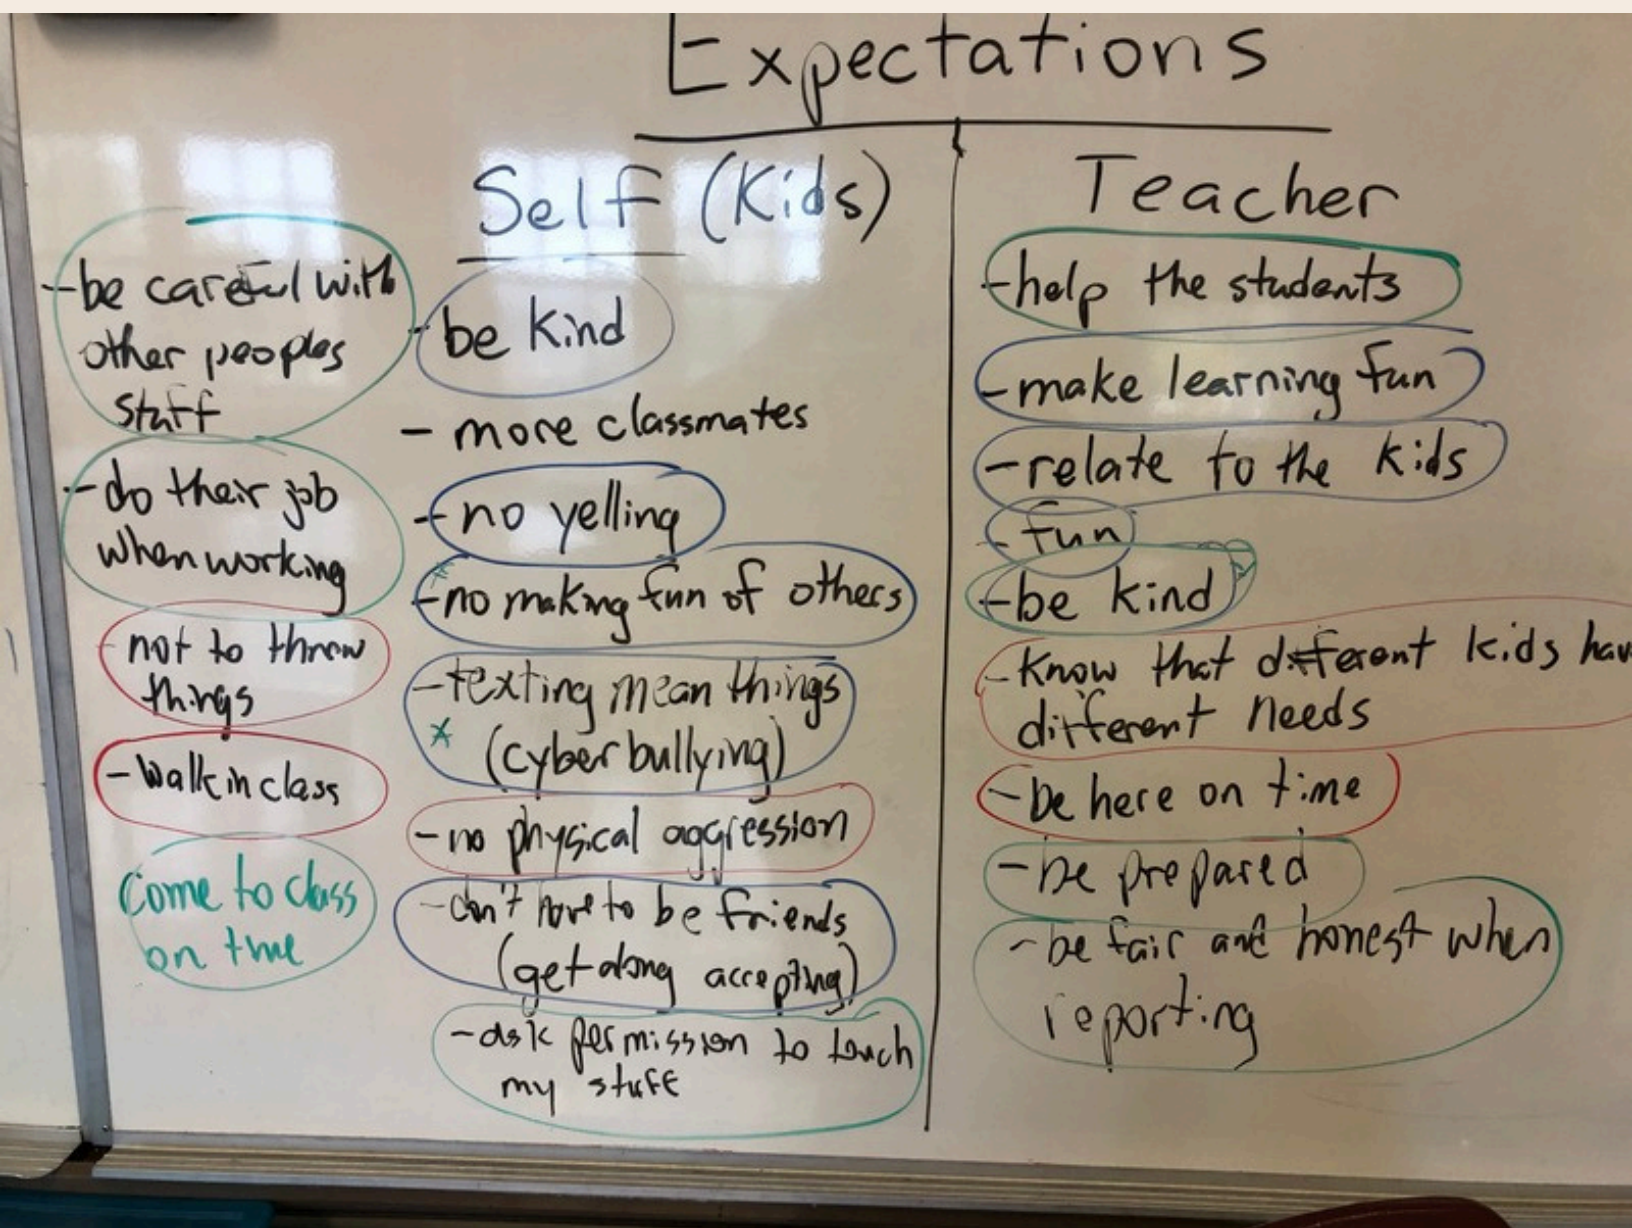 Expectations
Self (Kids)
- be careful with
other peoples
stuff
- do their job
when working
not to throw
things
- Walk in class
Come to class
on time
- be kind
- more classmates
- no yelling
- no making fun of others
- texting mean things
(cyberbullying)
- no physical aggression
- don't have to be friends
(get along accepting)
- ask permission to touch
my stuff
Teacher
- help the students
- make learning fun
- relate to the kids
- fun
- be kind
- Know that different kids hav
different needs
- be here on time
- be prepared
- be fair and honest when
reporting